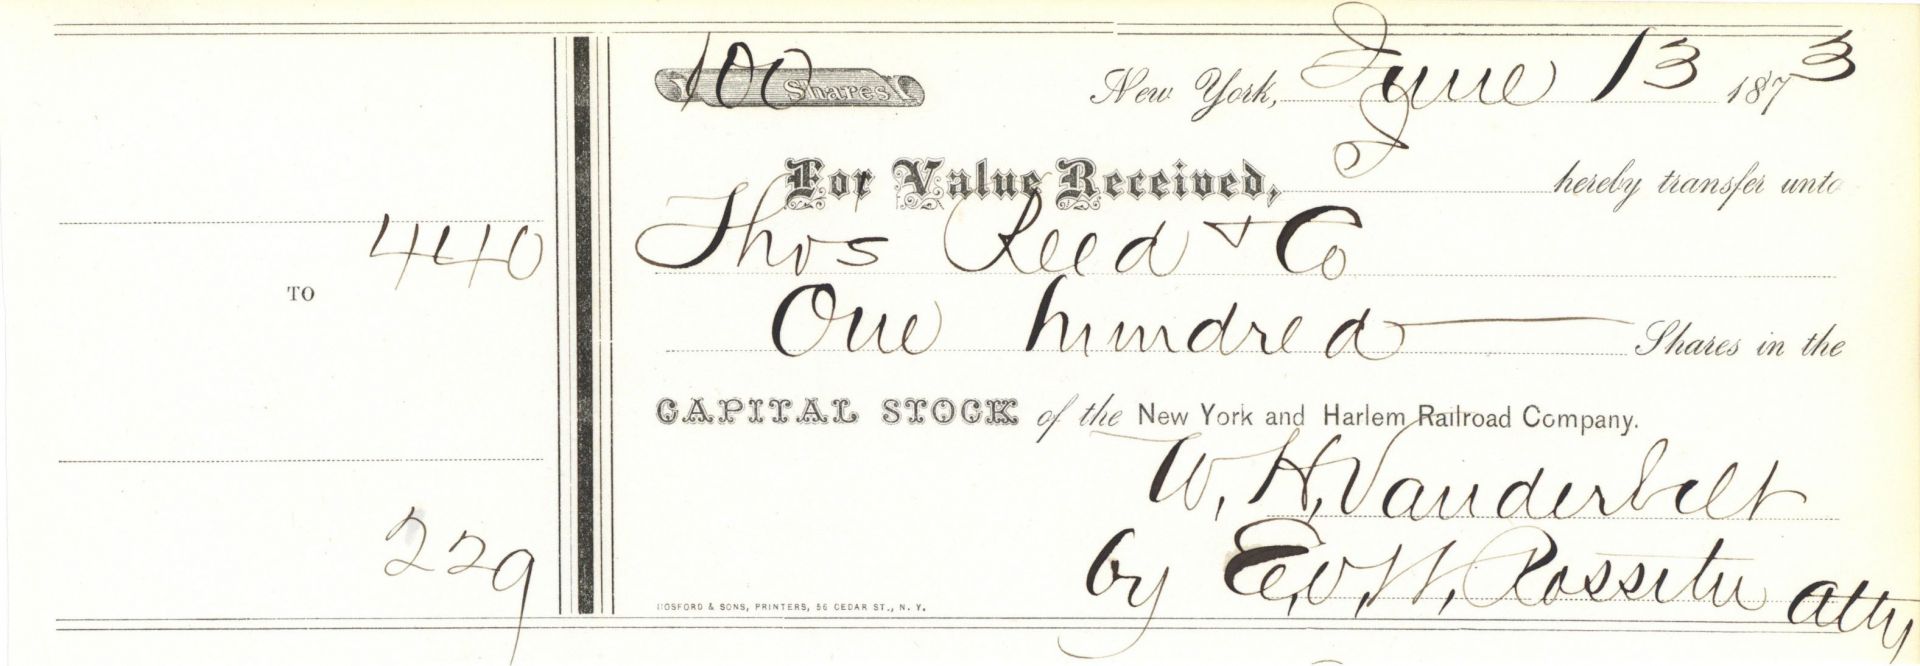 440
TO
229
100 Shares
New York, June 13 1873
For Value Received, I hereby transfer unto
Thos Reed & Co
One hundred Shares in the
CAPITAL STOCK of the New York and Harlem Railroad Company.
W. H. Vanderbilt
by E. V. W. Rossiter Atty
HOSFORD & SONS, PRINTERS, 56 CEDAR ST., N. Y.